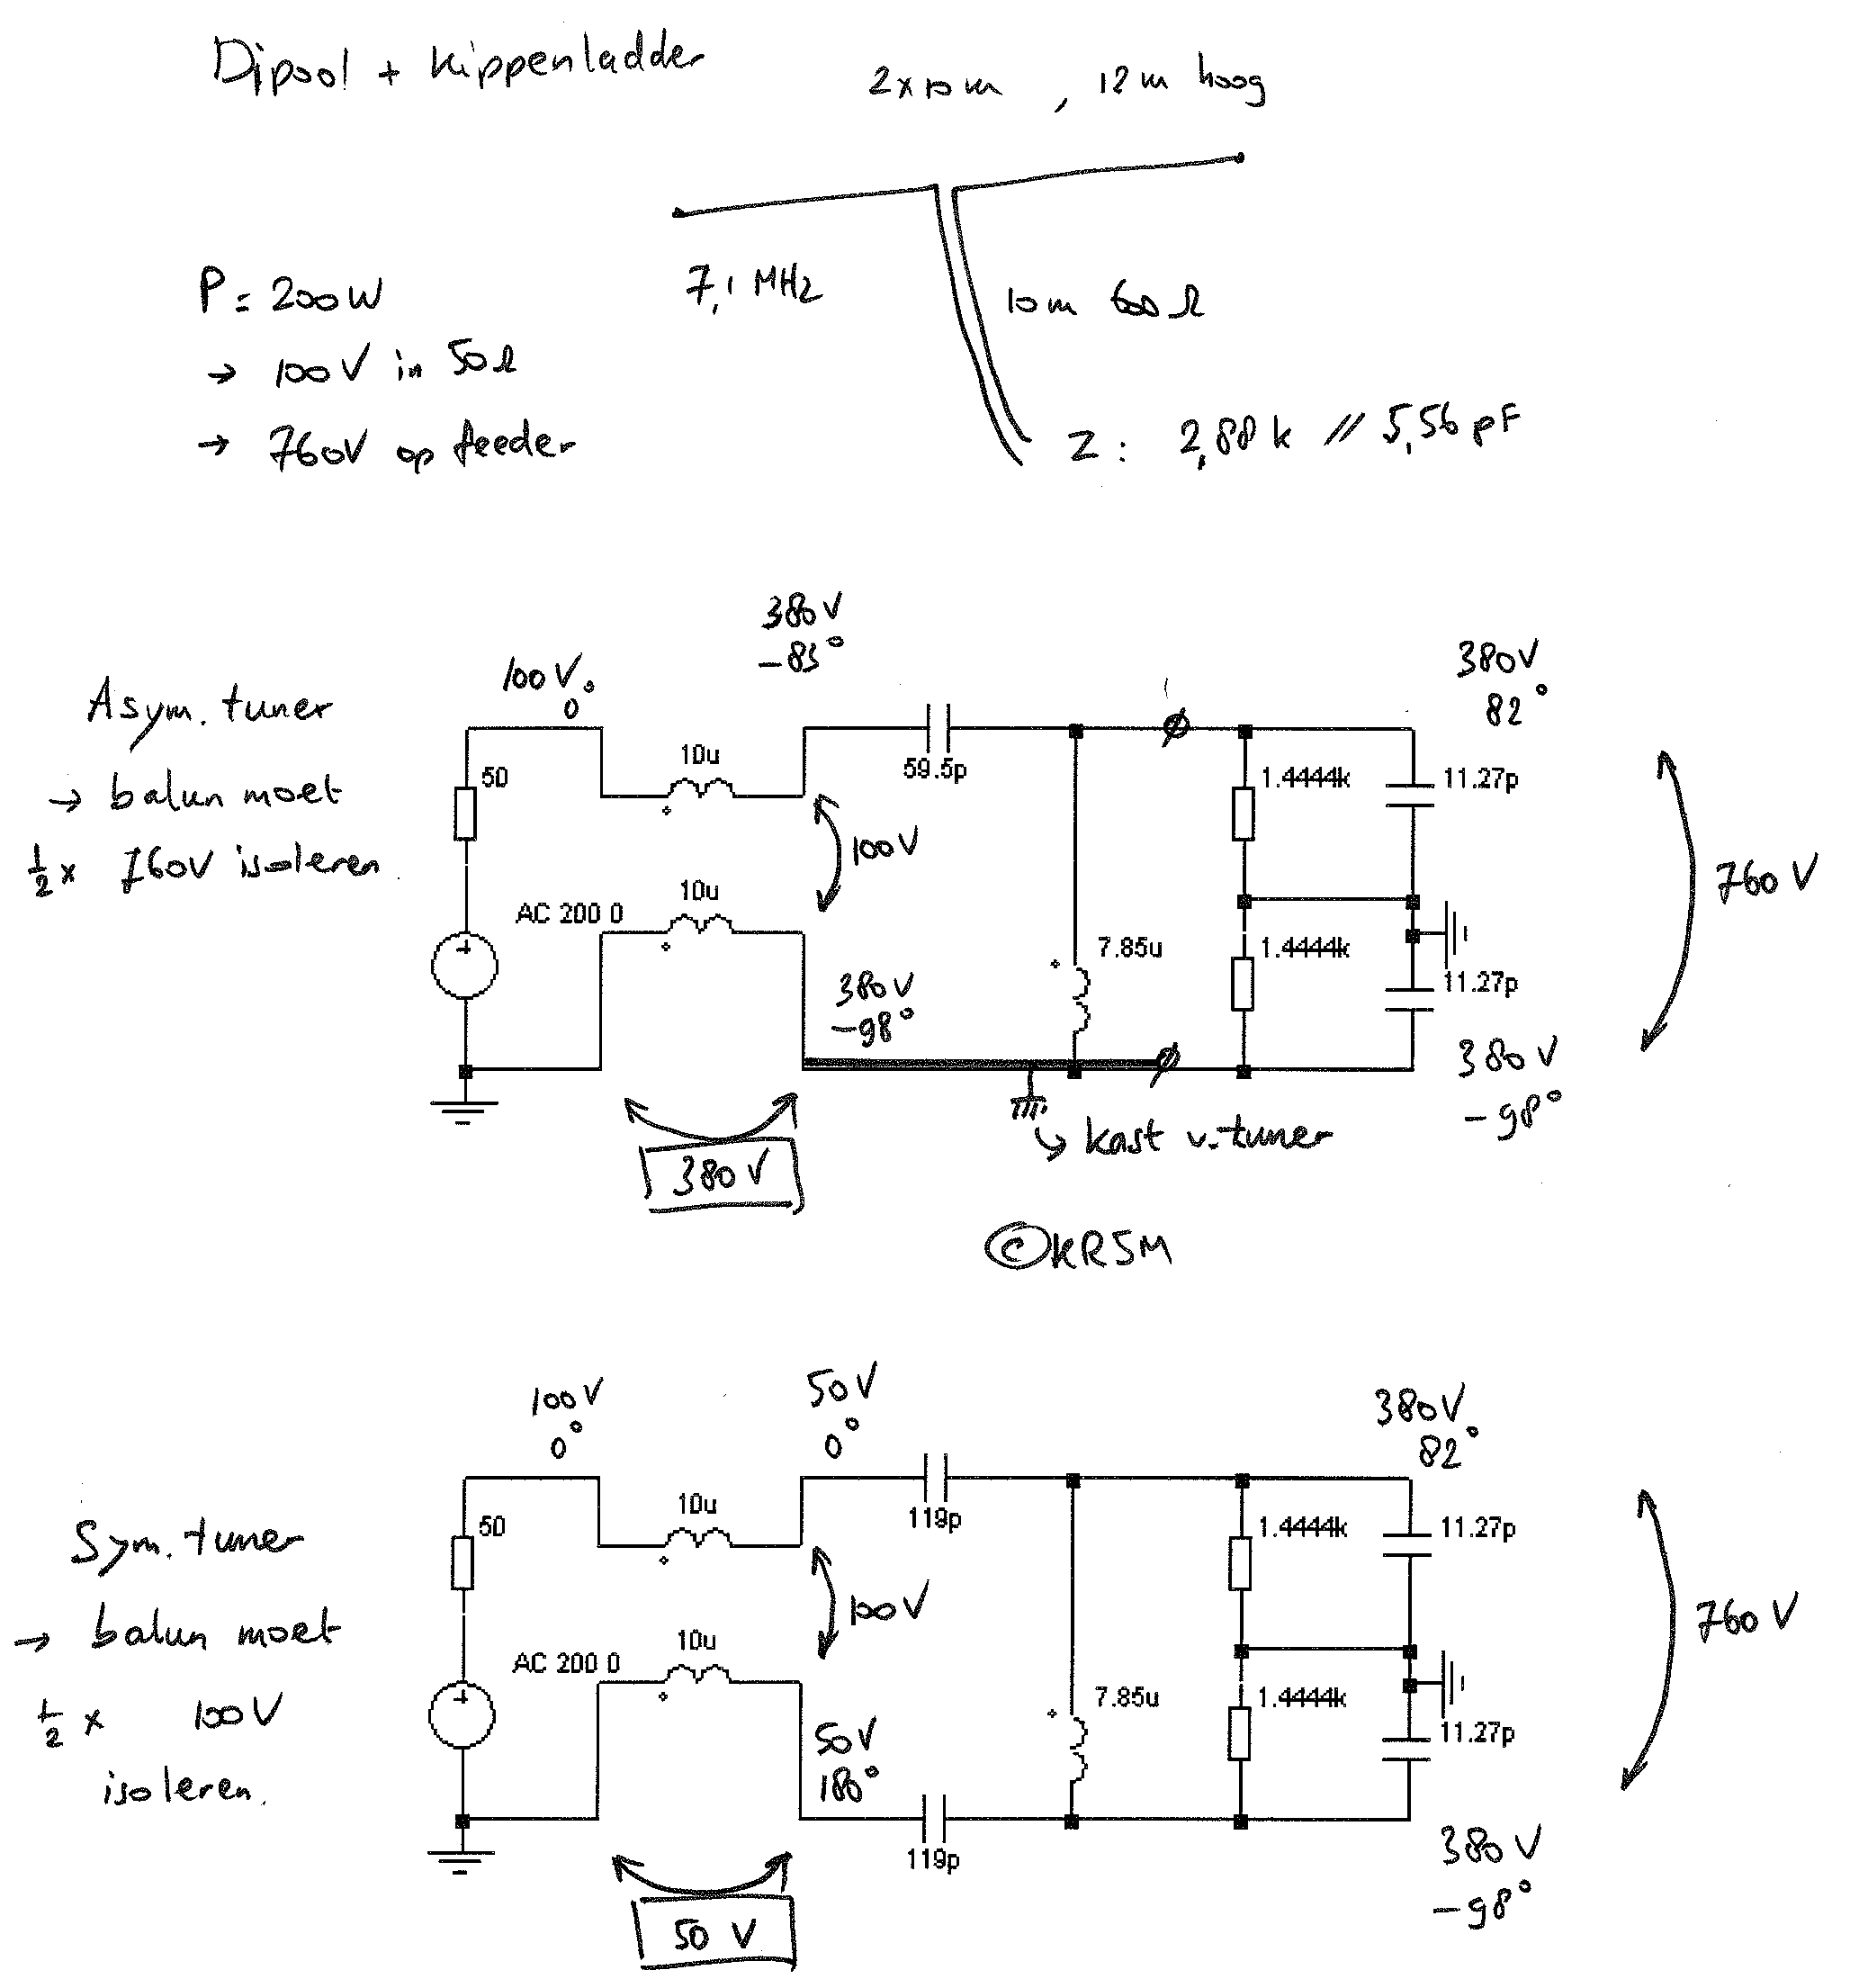 Dipool + kippenladder
2x10m, 12m hoog
P = 200W
→ 100V in 50Ω
→ 760V op feeder
7,1 MHz
10m 600Ω
Z: 2,88k // 5,56pF
Asym. tuner
→ balun moet
½ x 760V isoleren
100V
0°
380V
-83°
380V
82°
50
10u
59.5p
1.4444k
11.27p
100V
760V
AC 200 0
10u
7.85u
1.4444k
11.27p
380V
-98°
380V
-98°
380V
kast v. tuner
©KR5M
Sym. tuner
→ balun moet
½ x 100V
isoleren.
100V
0°
50V
0°
380V
82°
50
10u
119p
1.4444k
11.27p
100V
760V
AC 200 0
10u
7.85u
1.4444k
11.27p
50V
180°
119p
380V
-98°
50V